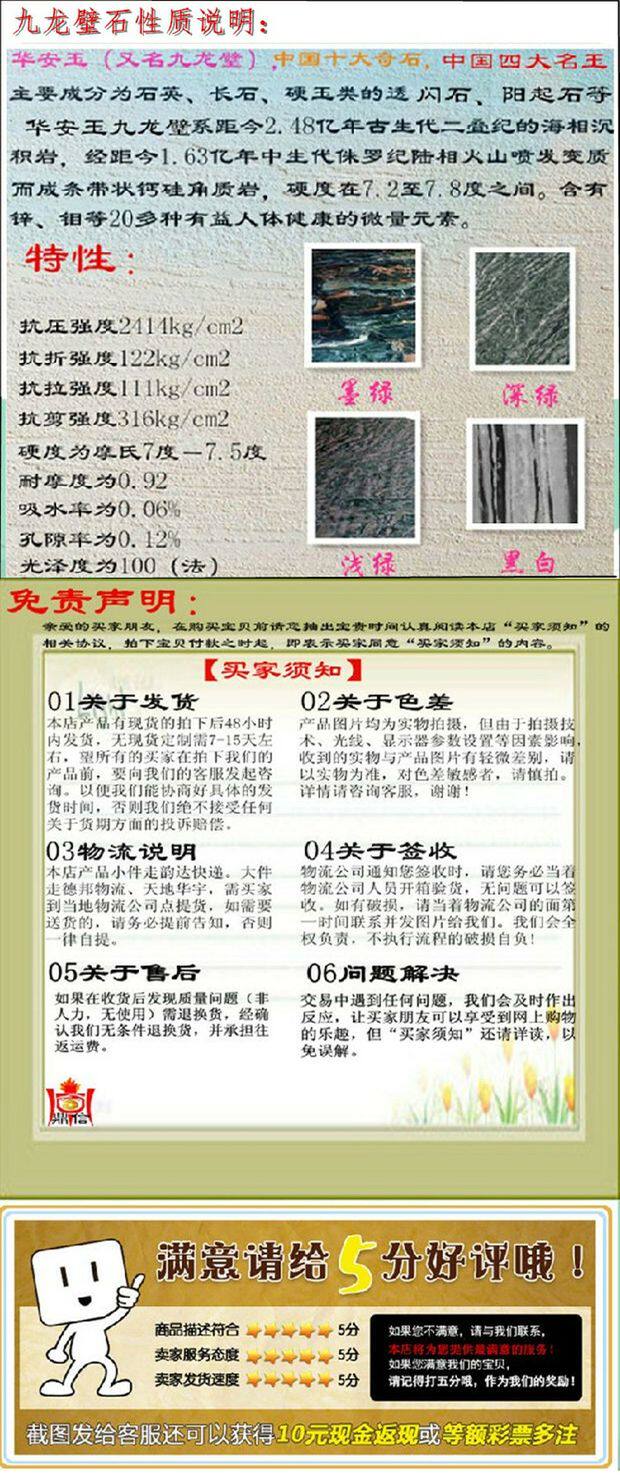 九龙壁石性质说明：
华安玉（又名九龙壁）,中国十大奇石，中国四大名玉
主要成分为石英、长石、硬玉类的透 闪石、阳起石等
华安玉九龙壁系距今2.48亿年古生代二叠纪的海相沉
积岩，经距今1.63亿年中生代侏罗纪陆相火山喷发变质
而成条带状钙硅角质岩，硬度在7.2至7.8度之间。含有
锌、钼等20多种有益人体健康的微量元素。
特性：
抗压强度2414kg/cm2
抗折强度122kg/cm2
抗拉强度111kg/cm2
抗剪强度316kg/cm2
硬度为摩氏7度－7.5度
耐摩度为0.92
吸水率为0.06%
孔隙率为0.12%
光泽度为100（法）
墨绿
深绿
浅绿
黑白
免责声明：
亲爱的买家朋友，在购买宝贝前请您抽出宝贵时间认真阅读本店“买家须知”的
相关协议，拍下宝贝付款之时起，即表示买家同意“买家须知”的内容。
【买家须知】
01关于发货
本店产品有现货的拍下后48小时
内发货，无现货定制需7-15天左
右，望所有的买家在拍下我们的
产品前，要向我们的客服发起咨
询。以便我们能协商好具体的发
货时间，否则我们绝不接受任何
关于货期方面的投诉赔偿。
02关于色差
产品图片均为实物拍摄，但由于拍摄技
术、光线、显示器参数设置等因素影响，
收到的实物与产品图片有轻微差别，请
以实物为准，对色差敏感者，请慎拍。
详情请咨询客服，谢谢！
03物流说明
本店产品小件走韵达快递。大件
走德邦物流、天地华宇，需买家
到当地物流公司点提货，如需要
送货的，请务必提前告知，否则
一律自提。
04关于签收
物流公司通知您签收时，请您务必当着
物流公司人员开箱验货，无问题可以签
收。如有破损，请当着物流公司的面第
一时间联系并发图片给我们。我们会全
权负责，不执行流程的破损自负！
05关于售后
如果在收货后发现质量问题（非
人力，无使用）需退换货，经确
认我们无条件退换货，并承担往
返运费。
06问题解决
交易中遇到任何问题，我们会及时作出
反应，让买家朋友可以享受到网上购物
的乐趣，但“买家须知”还请详读，以
免误解。
鼎信
满意请给5分好评哦！
商品描述符合 5分
卖家服务态度 5分
卖家发货速度 5分
如果您不满意，请与我们联系，
本店将为您提供最满意的服务！
如果您满意我们的宝贝，
请记得打五分哦，作为我们的奖励！
截图发给客服还可以获得10元现金返现或等额彩票多注